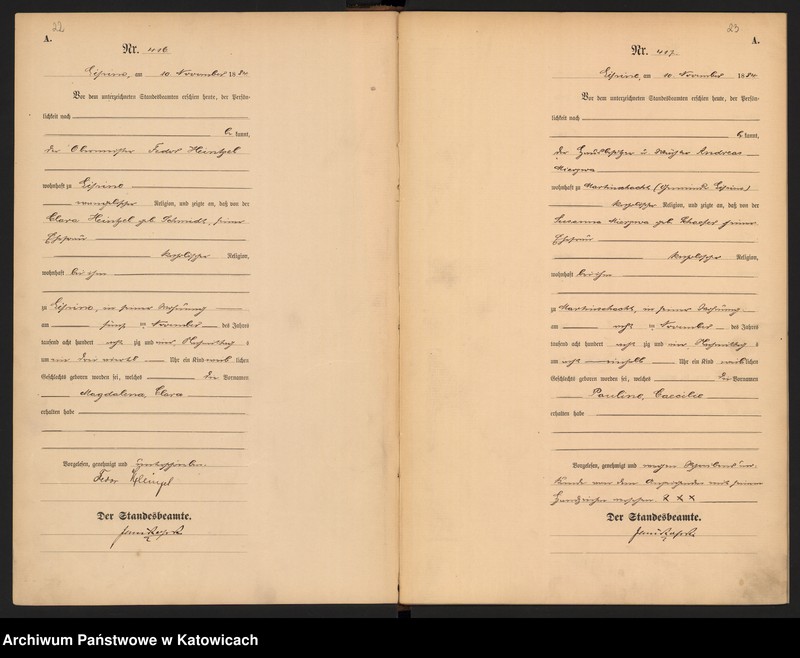 22
A.
Nr. 416
Lipine, am 10 November 1884.
Vor dem unterzeichneten Standesbeamten erschien heute, der Persön-
lichkeit nach
be kannt,
der Obermeister Fedor Heintzel
wohnhaft zu Lipine
evangelischer Religion, und zeigte an, daß von der
Clara Heintzel geb. Schmidt, seiner
Ehefrau
katholischer Religion,
wohnhaft bei ihm
zu Lipine, in seiner Wohnung
am fünf ten November des Jahres
tausend acht hundert acht zig und vier Nachmittag s
um drei viertel Uhr ein Kind weib lichen
Geschlechts geboren worden sei, welches die Vornamen
Magdalena, Clara
erhalten habe
Vorgelesen, genehmigt und unterschrieben.
Fedor Heinzel
Der Standesbeamte.
23
A.
Nr. 417.
Lipine, am 10. November 1884.
Vor dem unterzeichneten Standesbeamten erschien heute, der Persön-
lichkeit nach
be kannt,
der Hausbesitzer u. Andreas
wohnhaft zu Martinschacht (Gemeinde Lipine)
katholischer Religion, und zeigte an, daß von der
Susanna geb. seiner
Ehefrau
katholischer Religion,
wohnhaft bei ihm
zu Martinschacht, in seiner Wohnung
am acht ten November des Jahres
tausend acht hundert acht zig und vier Nachmittag s
um acht einhalb Uhr ein Kind weib lichen
Geschlechts geboren worden sei, welches die Vornamen
Pauline, Caecilie
erhalten habe
Vorgelesen, genehmigt und wegen Schreibens un-
kunde von dem Anzeigenden mit seinem
Handzeichen versehen. X X X
Der Standesbeamte.
Archiwum Państwowe w Katowicach